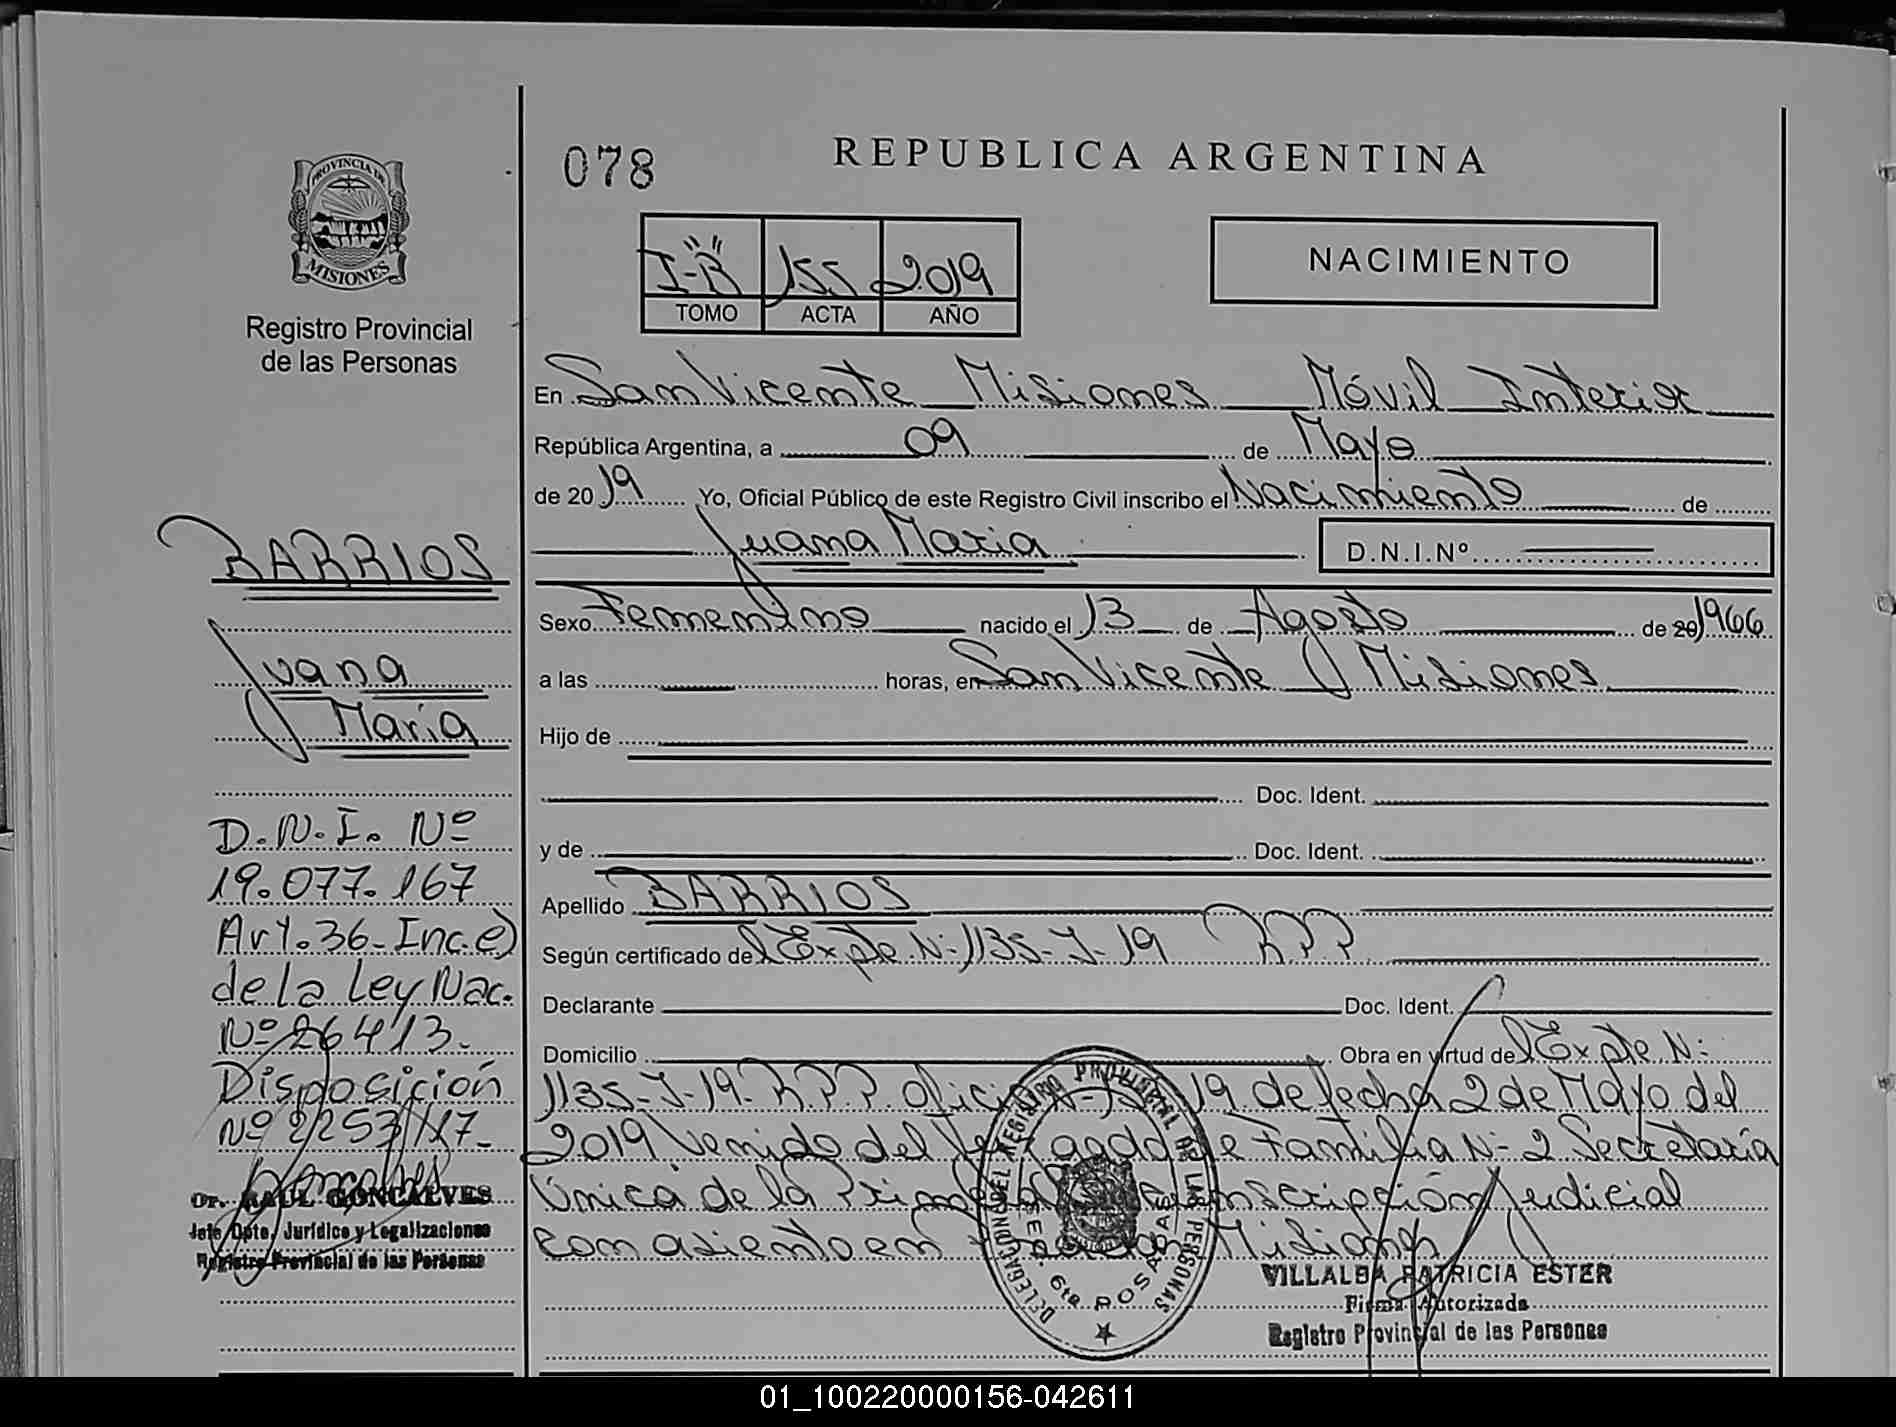 PROVINCIA DE
MISIONES
Registro Provincial
de las Personas
BARRIOS
Juana
María
D.N.I. Nº
19.077.167
Art.36-Inc.e)
de la Ley Nac.
Nº 26413.
Disposición
Nº 2253/17-
Dr. RAUL GONCALVES
Jefe Dpto. Jurídico y Legalizaciones
Registro Provincial de las Personas
078
REPUBLICA ARGENTINA
I-"B" 155 2019
TOMO ACTA AÑO
NACIMIENTO
En San Vicente Misiones Móvil Interior
República Argentina, a 09 de Mayo
de 2019 Yo, Oficial Público de este Registro Civil inscribo el Nacimiento de
Juana Maria D.N.I.Nº
Sexo Femenino nacido el 13 de Agosto de 20 1966
a las horas, en San Vicente Misiones
Hijo de
Doc. Ident.
y de Doc. Ident.
Apellido BARRIOS
Según certificado del Expte.N-1135-J-19 R.P.P.
Declarante Doc. Ident.
Domicilio Obra en virtud del Expte.N:
1135-J-19-R.P.P. 19 de fecha 2 de Mayo del
2019 Venido del de Familia N-2 Secretaría
Única de la Judicial
con asiento en Misiones
DELEGACION DEL REGISTRO PROVINCIAL DE LAS PERSONAS
SEC. 6ta POSADAS
VILLALBA PATRICIA ESTER
Firma Autorizada
Registro Provincial de las Personas
01_100220000156-042611